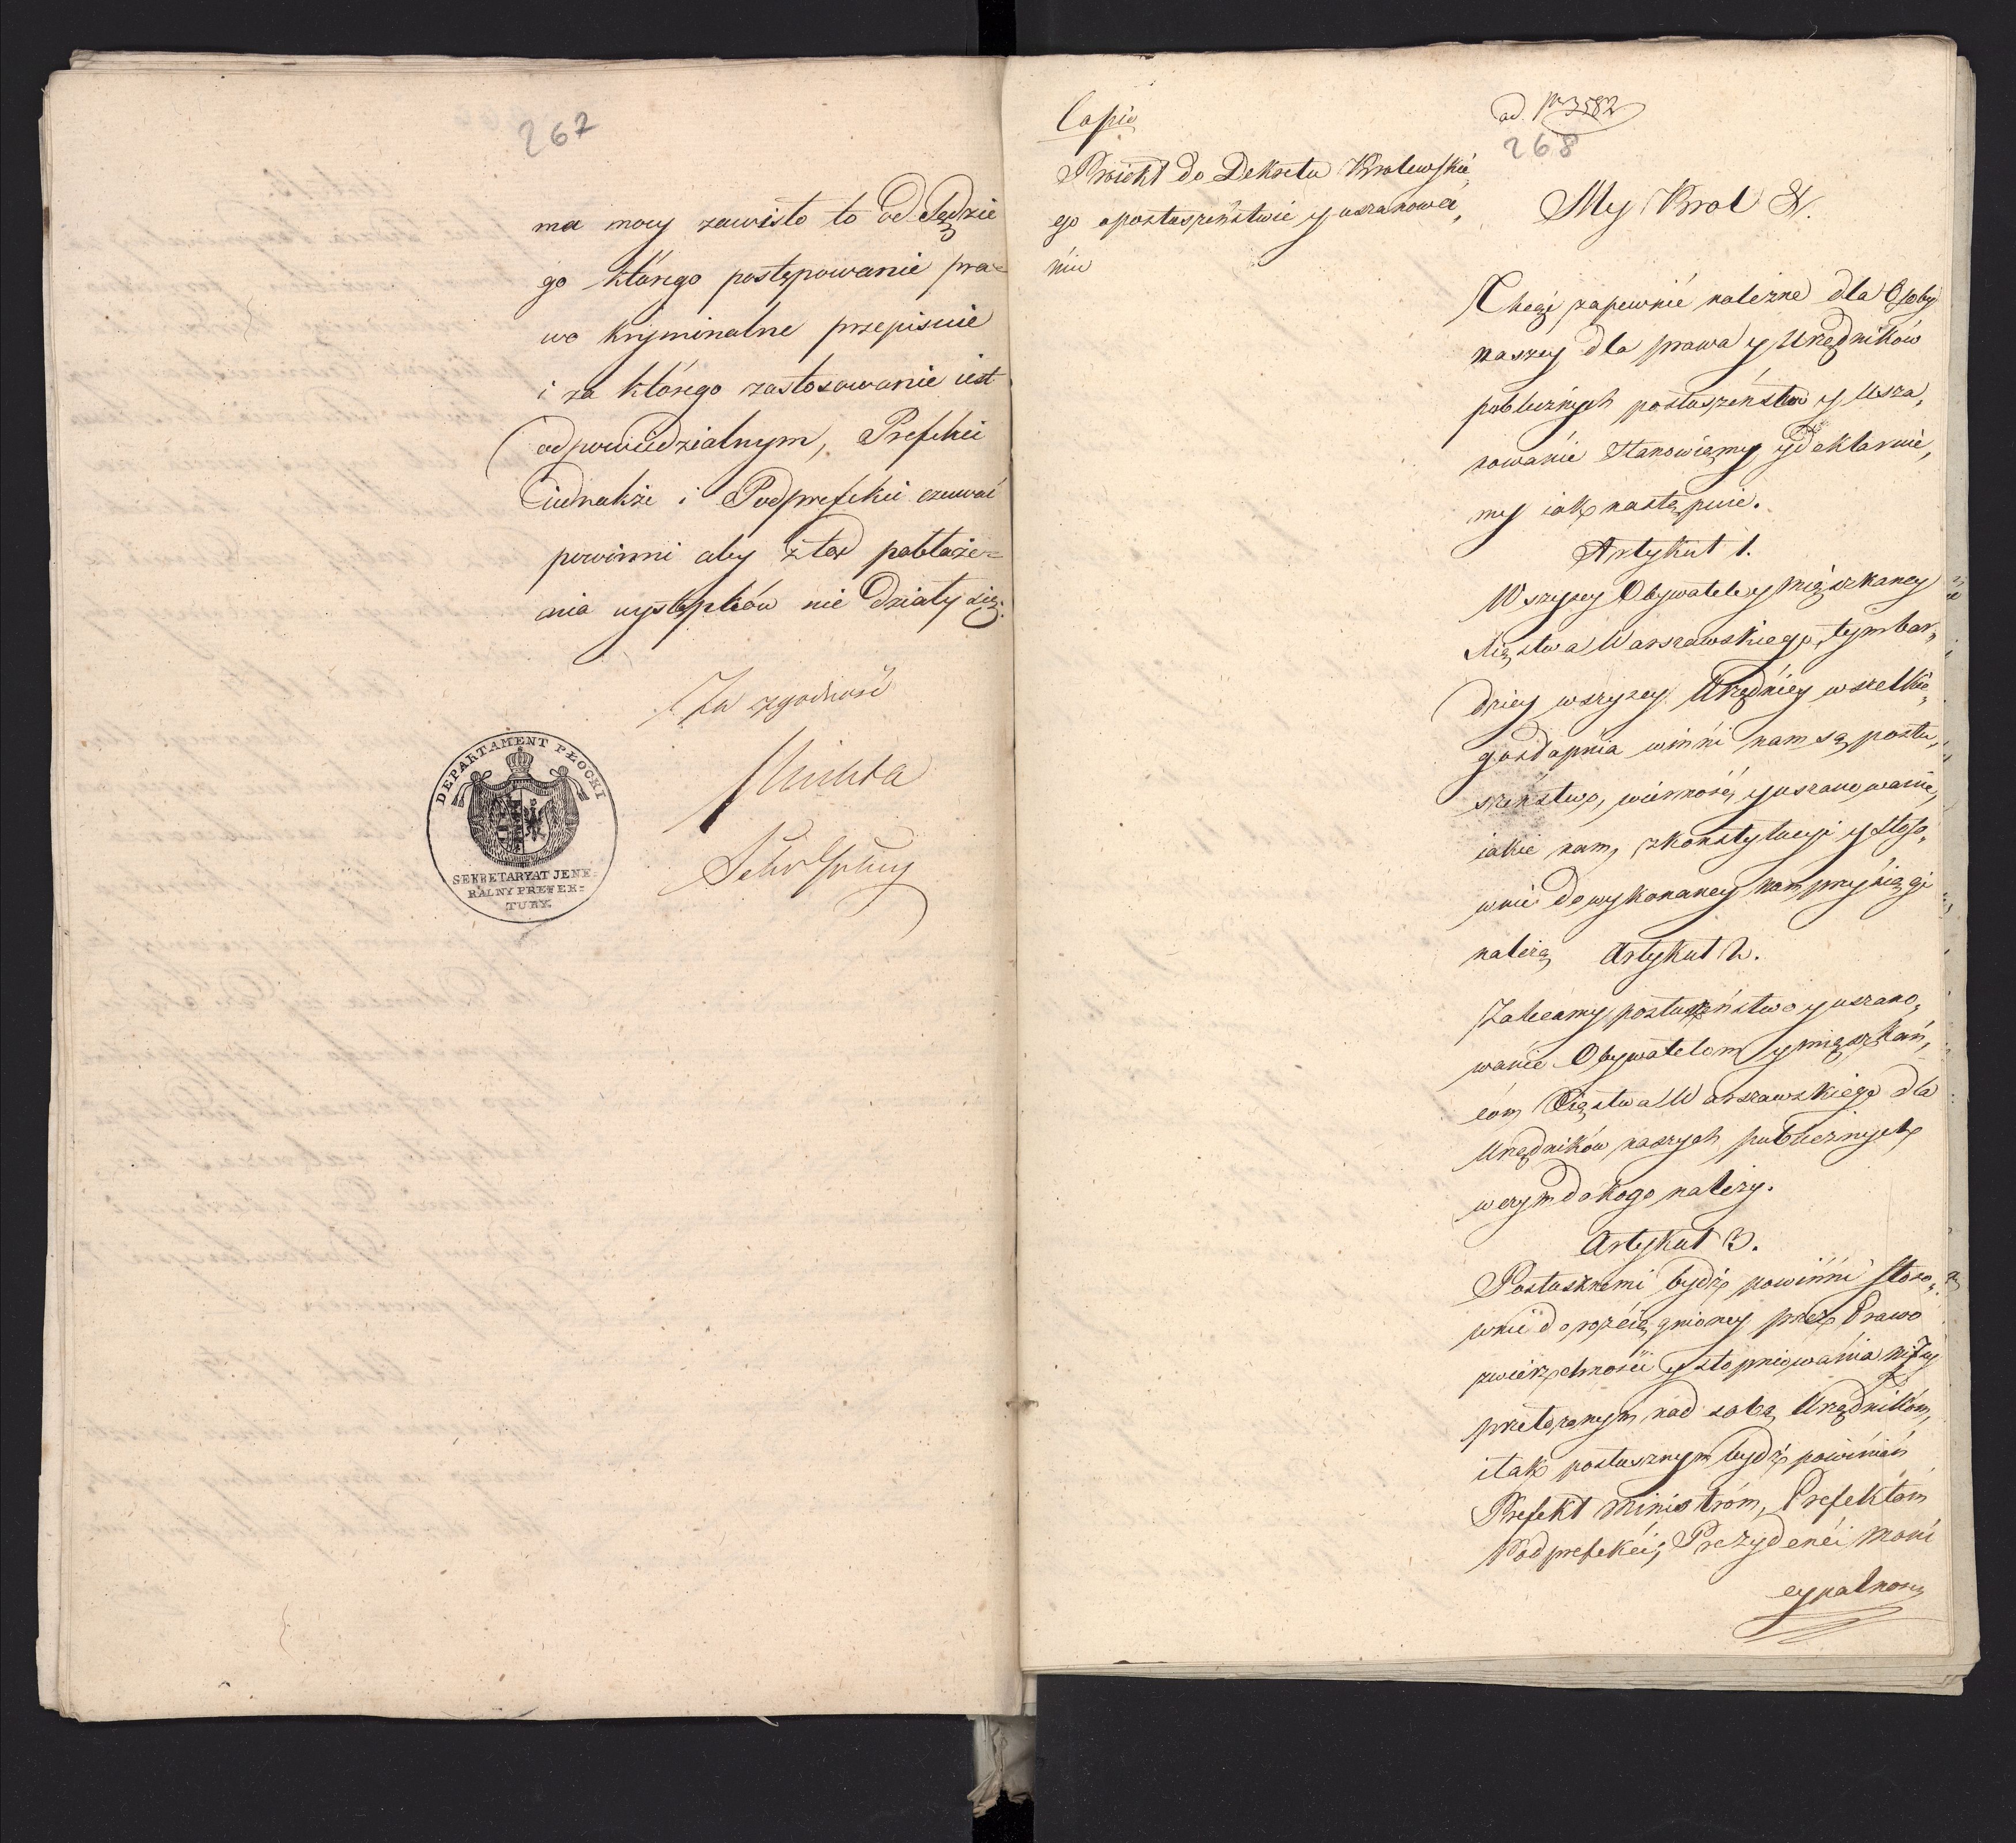 267
ma mocy zawisło to od Sędzie
go którego postępowanie pra=
wo kryminalne przepisuie
i za którego zastosowanie iest
odpowiedzialnym, Prefekci
iednakże i Podprefekci czuwać
powinni aby z tąd pobłaże=
nia występków nie działy się.
Za zgodność
DEPARTAMENT PŁOCKI
SEKRETARYAT JENE=
RALNY PREFEK=
TURY.
Copia
Proiekt do Dekretu Krolewskie,
go o posłuszeństwie y uszanowa,
niu
ad. Nr 3582
268
My Krol &.
Chcąc zapewnić należne dla Osoby
naszey dla prawa y Urzędników
publicznych posłuszeństwo y Usza,
nowanie Stanowiemy y deklaruie,
my iak następuie.
Artykuł 1.
Wszyscy Obywatele y mieszkancy
Xięstwa Warszawskiego, tym bar,
dziey wszyscy Urzędnicy wszelkie,
go stopnia winni nam są posłu,
szeństwo, wierność, y uszanowanie,
iakie nam, z konstytucyi y stoso,
wnie do wykonaney nam przysięgi
należą Artykuł 2.
Zalecamy posłuszeństwo y uszano,
wanie Obywatelom y mieszkań,
com Xięstwa Warszawskiego dla
Urzędników naszych publicznych
w czym do kogo należy.
Artykuł 3.
Posłusznemi bydź powinni stoso,
wnie do rozciągnioney przez Prawo
zwierzchności y stopniowania niżsy
przełożonym nad sobą Urzędnikom,
i tak posłusznym bydź powinien
Prefekt Ministrom, Prefektom
Podprefekci; Prezydenci Muni
cypalności